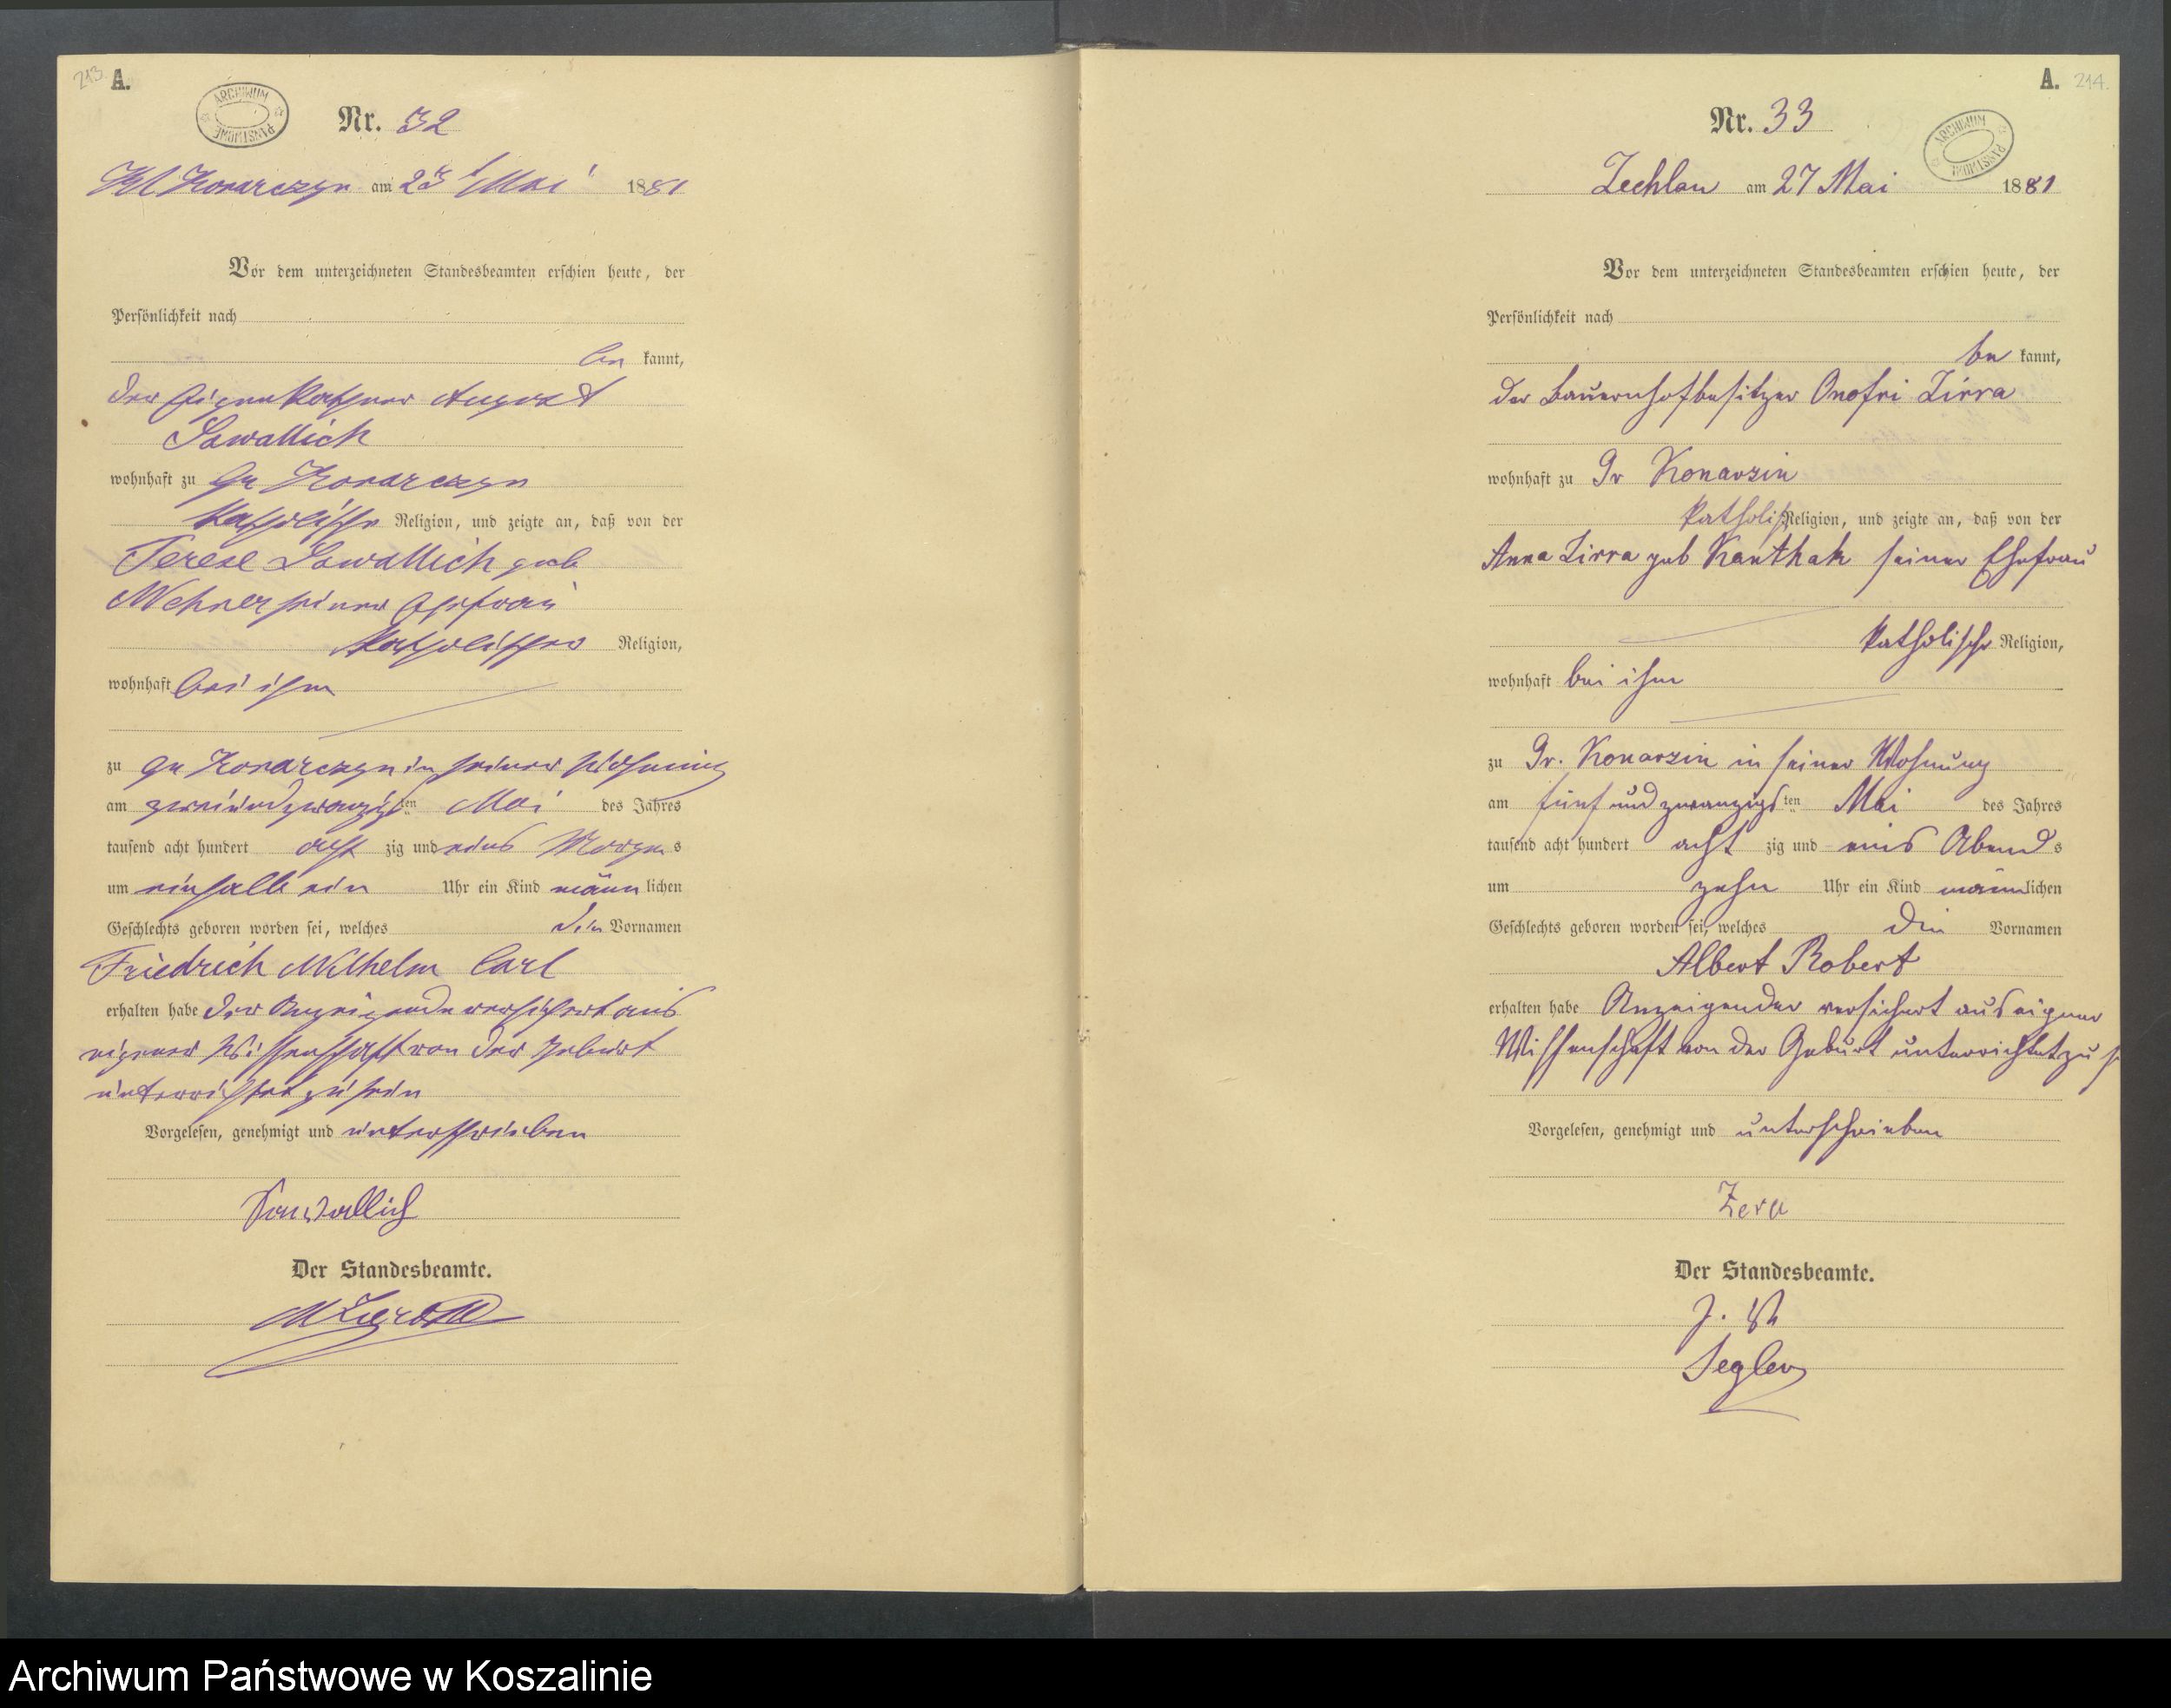 213. A.
ARCHIWUM PAŃSTWOWE
Nr. 32
Kl Konarczyn am 23 Mai 1881
Vor dem unterzeichneten Standesbeamten erschien heute, der
Persönlichkeit nach
be kannt,
der Eigenkathner August
Sawallich
wohnhaft zu Gr Konarczyn
katholische Religion, und zeigte an, daß von der
Terese Sawallich geb
Wehner seiner Ehefrau
katholischer Religion,
wohnhaft bei ihm
zu Gr Konarczyn in seiner Wohnung
am zweiundzwanzigsten Mai des Jahres
tausend acht hundert acht zig und eins Morgens
um einhalb ein Uhr ein Kind männlichen
Geschlechts geboren worden sei, welches die Vornamen
Friedrich Wilhelm Carl
erhalten habe der Anzeigende versichert aus
eigener Wissenschaft von der Geburt
unterrichtet zu sein
Vorgelesen, genehmigt und unterschrieben
Sawallich
Der Standesbeamte.
A. 214.
ARCHIWUM PAŃSTWOWE
Nr. 33
Zechlau am 27 Mai 1881
Vor dem unterzeichneten Standesbeamten erschien heute, der
Persönlichkeit nach
be kannt,
der Bauernhofbesitzer Onofri Zirra
wohnhaft zu Gr Konarzin
katholisch Religion, und zeigte an, daß von der
Anna Zirra geb Kanthak seiner Ehefrau
katholischer Religion,
wohnhaft bei ihm
zu Gr. Konarzin in seiner Wohnung
am fünfundzwanzigsten Mai des Jahres
tausend acht hundert acht zig und eins Abends
um zehn Uhr ein Kind männlichen
Geschlechts geboren worden sei, welches die Vornamen
Albert Robert
erhalten habe Anzeigender versichert aus eigener
Wissenschaft von der Geburt unterrichtet zu s
Vorgelesen, genehmigt und unterschrieben
Zera
Der Standesbeamte.
J. V.
Segler
Archiwum Państwowe w Koszalinie